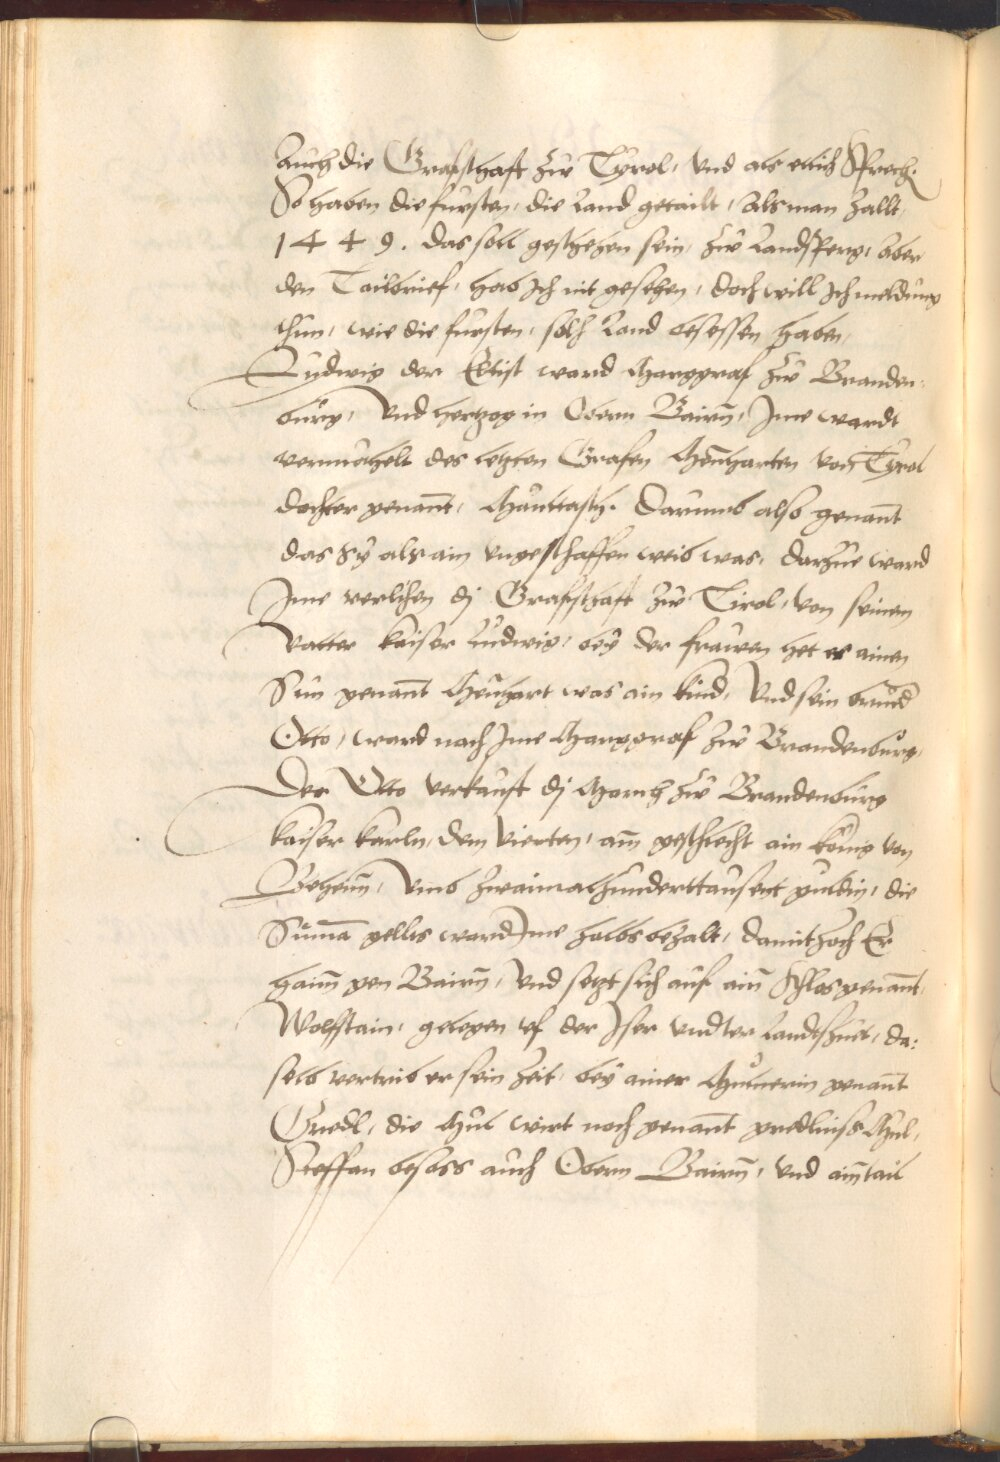 Auch die Grafschaft zw Tyrol, vnd als etlich Sprech.
So haben die fursten, die Land getailt, Als man zallt,
1449. das soll geschehen sein, zw Landsperg, aber
den Tailbrief, hab Ich nit gesehen, doch will Ich meldung
thun, wie die fursten, solh Land besessen haben,
Ludwig der Eltist ward Marggraf zw Branden-
burg, Vnd hertzog in Obern Bairn, Ime wardt
vermahelt des letzten Grafen Meinharten von Tyrol
dochter genant, Maulltasch. Darumb also genant
das Sy als ain vngeschaffen weib was, darzue ward
Ime verlihen dj Grafschaft zw Tirol, von seinen
Vatter kaiser Ludwig, bey der frawen het er ainen
Sun genant Meinhart was ain kind, Vnd sein brued
Otto, ward nach Ime Marggraf zw Brandenburg,
Der Otto verkauft dj March zw Brandenburg
kaiser karln, dem vierten, am geschlecht ain König von
Beheim, Vmb zwaimalhunderttausent guldin, die
Suma gellts ward Ime halbs bezalt, damit zoch Er
haim gen Bairn, Vnd setzt sich auf ain Schlos genant,
Wolfstain, gelegen uf der Iser vndter Landtshuet, da:
selb vertrib er sein zeit, bey ainer Mulnerin genant
Gredl, die Mul wirt noch genant gredlnis Mul,
Steffan besass auch Obern Bairn, vnd ain tail